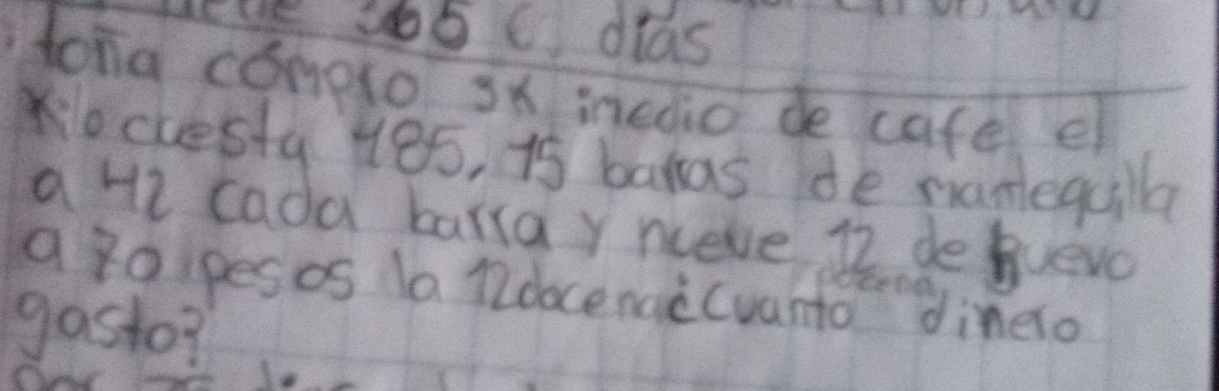 365 c. días
toña cómpro 3K imedio de cafe el
Kilo cuesta 185, 15 barras de mantequilla
a 42 cada barra y nueve 12 de huevo
docena
a 70 pesos la 12docena ¿Cuanto dinero
gasto?